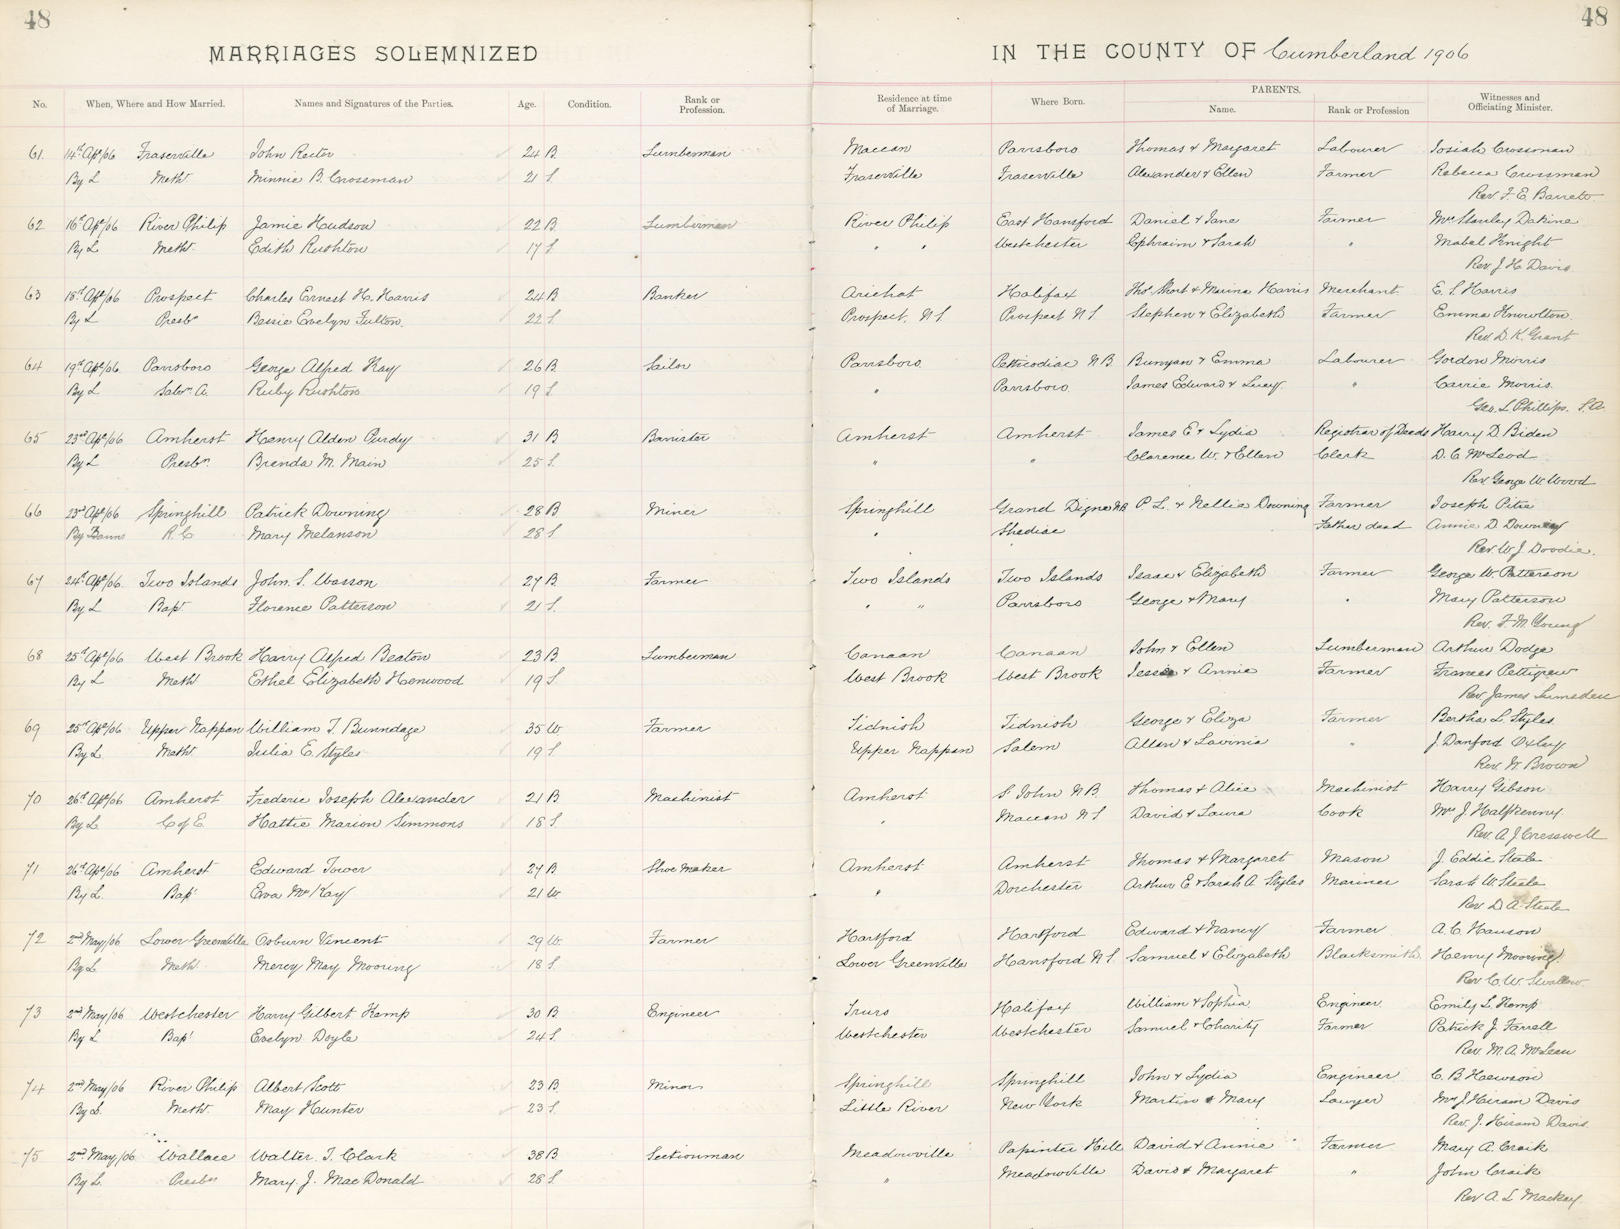 48
48
MARRIAGES SOLEMNIZED
IN THE COUNTY OF Cumberland 1906
No. When, Where and How Married. Names and Signatures of the Parties. Age. Condition. Rank or Profession. Residence at time of Marriage. Where Born. PARENTS. Name. Rank or Profession Witnesses and Officiating Minister.
61. 14th Apl/06 Fraserville John Rector 24 B. Lumberman Maccan Parrsboro Thomas & Margaret Labourer Josiah Crossman
By L Meth Minnie B. Crossman 21 S. Fraserville Fraserville Alexander & Ellen Farmer Rebecca Crossman
Rev. F. E. Barrett
62 16th Apl/06 River Philip Jamie Hudson 22 B Lumberman River Philip East Hansford Daniel & Jane Farmer Mrs Stanley Dakine
By L Meth. Edith Rushton 17 S. " " Westchester Ephraim & Sarah " Mabel Knight
Rev J. H. Davis.
63 18th Apl/06 Prospect Charles Ernest H. Harris 24 B Banker Arichat Halifax Thos. Short & Marina Harris Merchant E. S. Harris
By L Presbn Bessie Evelyn Fulton. 22 S. Prospect, N.S. Prospect N S Stephen & Elizabeth Farmer Emma Knowlton.
Rev D. K. Grant
64 19th Apl/06 Parrsboro George Alfred Kay 26 B Sailor Parrsboro Petticodiac N.B. Bunyan & Emma Labourer Gordon Morris
By L Salvn A. Ruby Rushton 19 S. " Parrsboro James Edward & Lucy " Carrie Morris.
Geo. L Phillips. S.A.
65 23rd Apl/06 Amherst Henry Alden Purdy 31 B Barrister Amherst Amherst James E & Lydia Registrar of Deeds Harry D. Biden
By L Presbn. Brenda M. Main 25 S. " " Clarence W. & Ellen Clerk D. C McLeod
Rev George W. Wood
66 23rd Apl/06 Springhill Patrick Downing 28 B Miner Springhill Grand Digne NB P. L. & Nellie Downing Farmer Joseph Pitre
By Banns R. C Mary Melanson 28 S. " Shediac Father dead Annie D Downing
Rev. W. J. Doodie.
67 24th Apl/06. Two Islands John. S. Wasson 27 B. Farmer Two Islands Two Islands Isaac & Elizabeth Farmer George W. Patterson
By L Bapt. Florence Patterson 21 S. " " Parrsboro George & Mary " Mary Patterson
Rev. F. M. Young
68 25th Apl/06 West Brook Harry Alfred Beaton 23 B. Lumberman Canaan Canaan John & Ellen Lumberman Arthur Dodge
By L Meth Ethel Elizabeth Henwood 19 S West Brook West Brook Jessie & Annie Farmer Frances Pettigrew
Rev. James Lumsden
69 25th Apl/06 Upper Nappan William T. Brundage 35 W. Farmer Tidnish Tidnish George & Eliza Farmer Bertha L. Styles
By L Meth Julia E. Styles 19 S Upper Nappan Salem Allen & Lavinia " J. Danford Oxley
Rev. W. Brown
70 26th Apl/06 Amherst Frederic Joseph Alexander 21 B Machinist Amherst St John N.B. Thomas & Alice Machinist Harry Gibson
By L. C of E. Hattie Marion Simmons 18 S. " Maccan N S David & Laura Cook Mrs J Halfkenny.
Rev. A. J. Cresswell
71 26th Apl/06 Amherst Edward Tower 27 B Shoe Maker Amherst Amherst Thomas & Margaret Mason J. Eddie Steele
By L. Bapt Eva McKay 21 W. " Dorchester Arthur E & Sarah A Styles Mariner Sarah W. Steele
Rev. D. A. Steele
72 2nd May/06 Lower Greenville Osburn Vincent 29 W. Farmer Hartford Hartford Edward & Nancy Farmer A. C. Hauson
By L Meth. Mercy May Mooring 18 S. Lower Greenville Hansford N S Samuel & Elizabeth Blacksmith Henry Mooring.
Rev C. W. Swallow.
73 2nd May/06 Westchester Harry Gilbert Kemp 30 B Engineer Truro Halifax William & Sophia Engineer Emily L. Kemp
By L Bapt Evelyn Doyle 24 S. Westchester Westchester Samuel & Charity Farmer Patrick J. Farrell
Rev. M. A. McLean
74 2nd May/06 River Philip Albert Scott 23 B Miner Springhill Springhill John & Lydia Engineer C. B Hewson
By L. Meth. May Hunter 23 S. Little River New York Martin & Mary Lawyer Mrs J. Hiram Davis
Rev. J. Hiram Davis.
75 2nd May/06 Wallace Walter. T. Clark 38 B Sectionman Meadowville Papinter Hill David & Annie Farmer Mary A. Craik
By L. Presbn Mary. J. MacDonald 28 S. " Meadowville David & Margaret " John Craik
Rev A. L Mackay